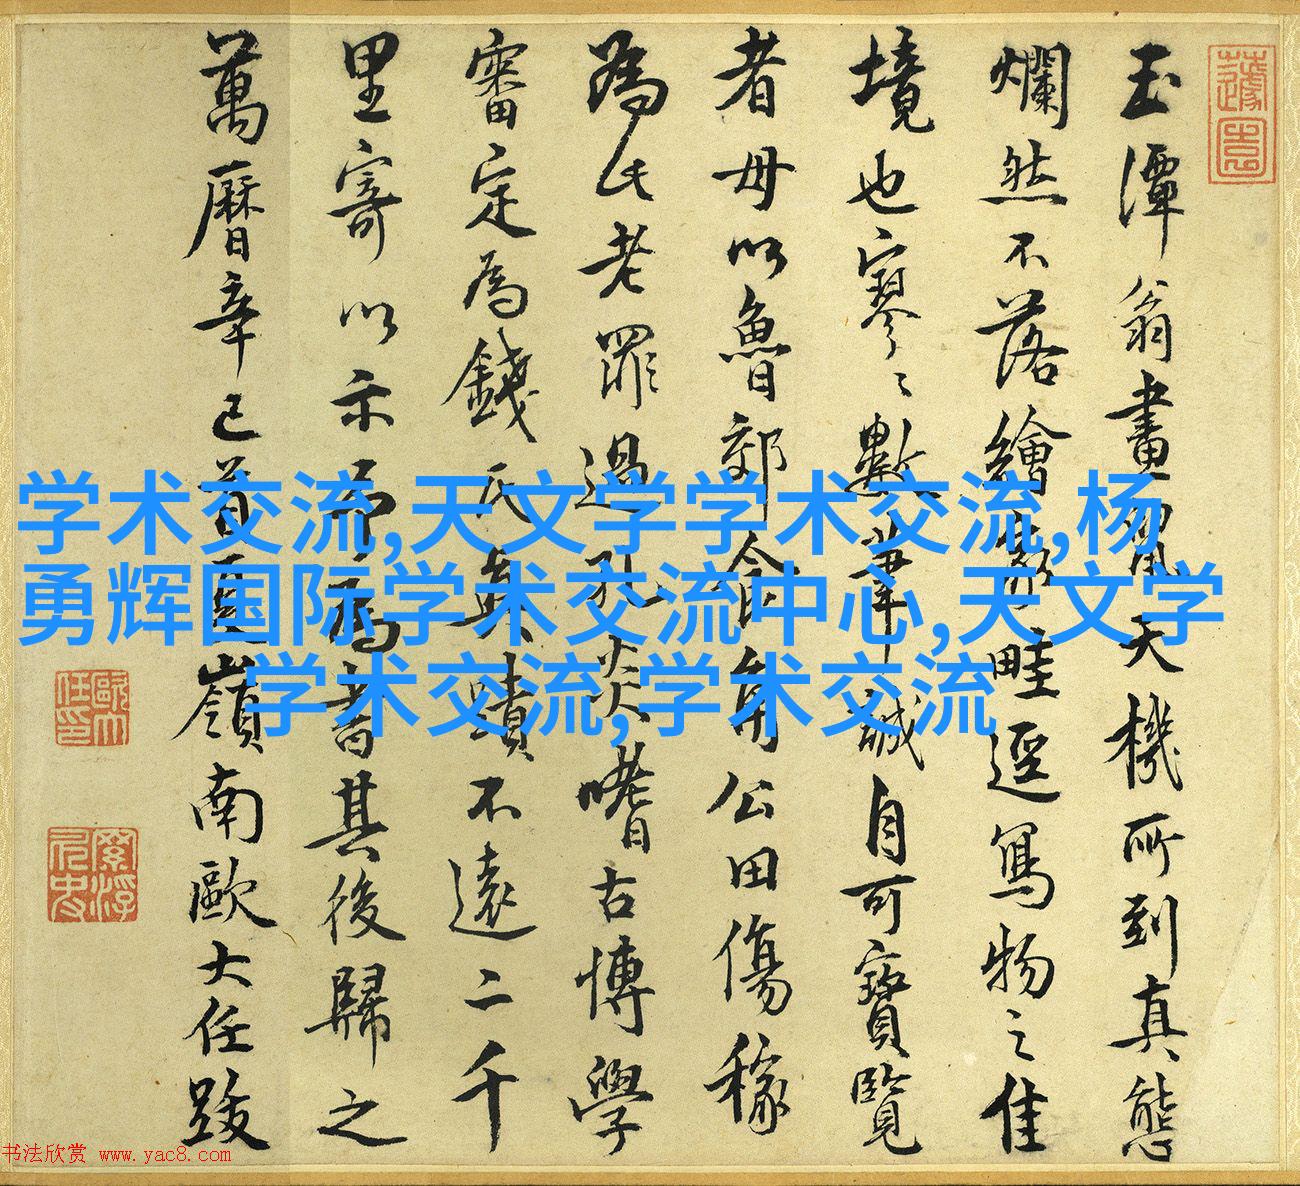 玉潭翁畫鼠天機所到真態
爛然不落繪家畦逕寫物之佳
境也寥〻數筆誠自可寶覽
者毋以魯郊食角公田傷稼
為氏老罪過孔炎嗜古博學
審定為錢氏真蹟不遠二千
里寄以示余為書其後歸之
萬曆辛巳首夏嶺南歐大任跋
歐大任印
学术交流,天文学学术交流,杨
勇辉国际学术交流中心,天文学
学术交流,学术交流
书法欣赏 www.yac8.com